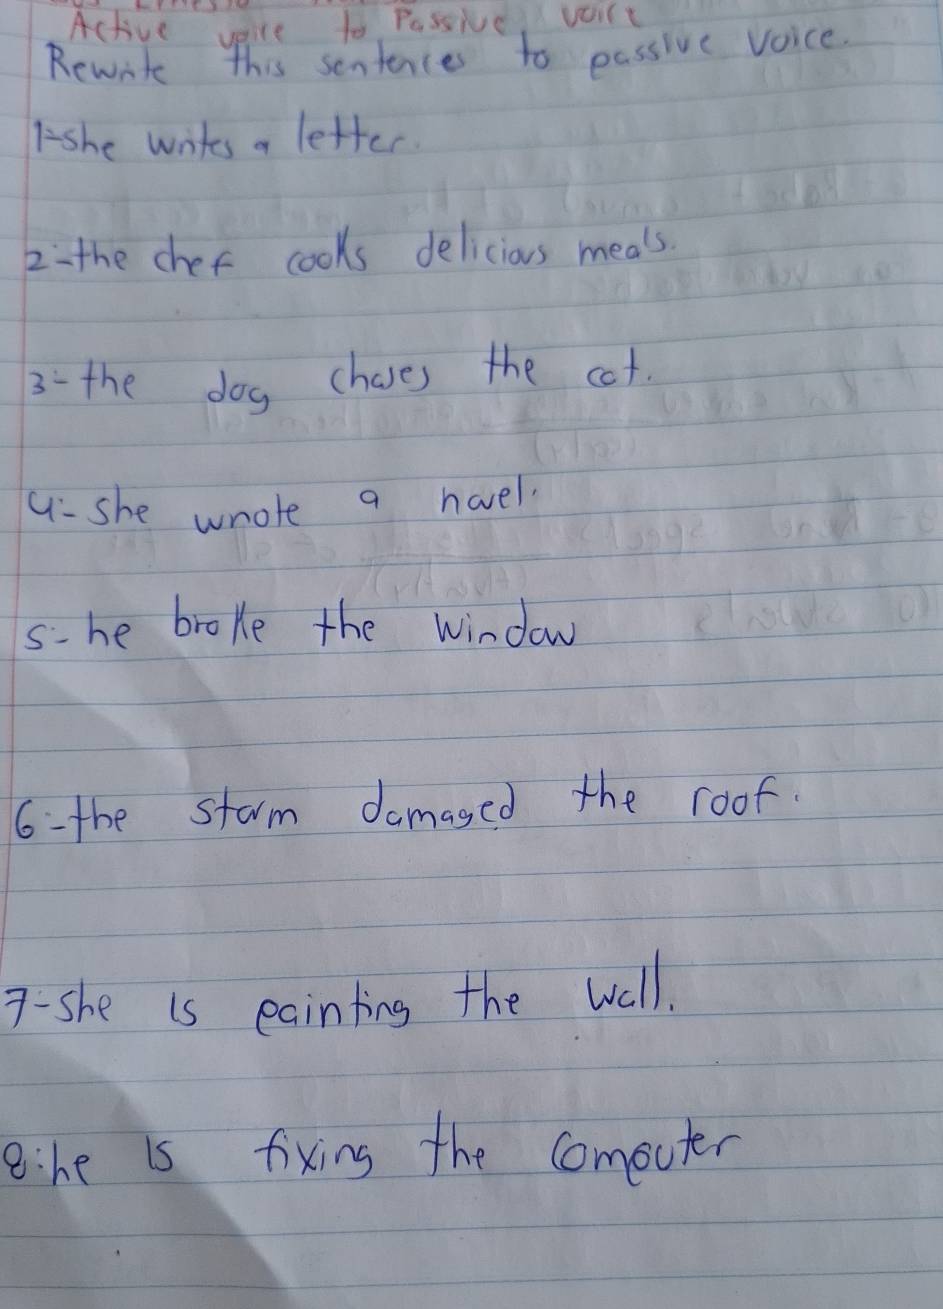 Active voice to Passive voice
Rewrite this sentences to passive voice.
1-she writes a letter.
2-the chef cooks delicious meals.
3-the dog chases the cat.
4-she wrote a novel.
5-he broke the window
6-the storm damaged the roof.
7-she is painting the wall.
8-he is fixing the computer